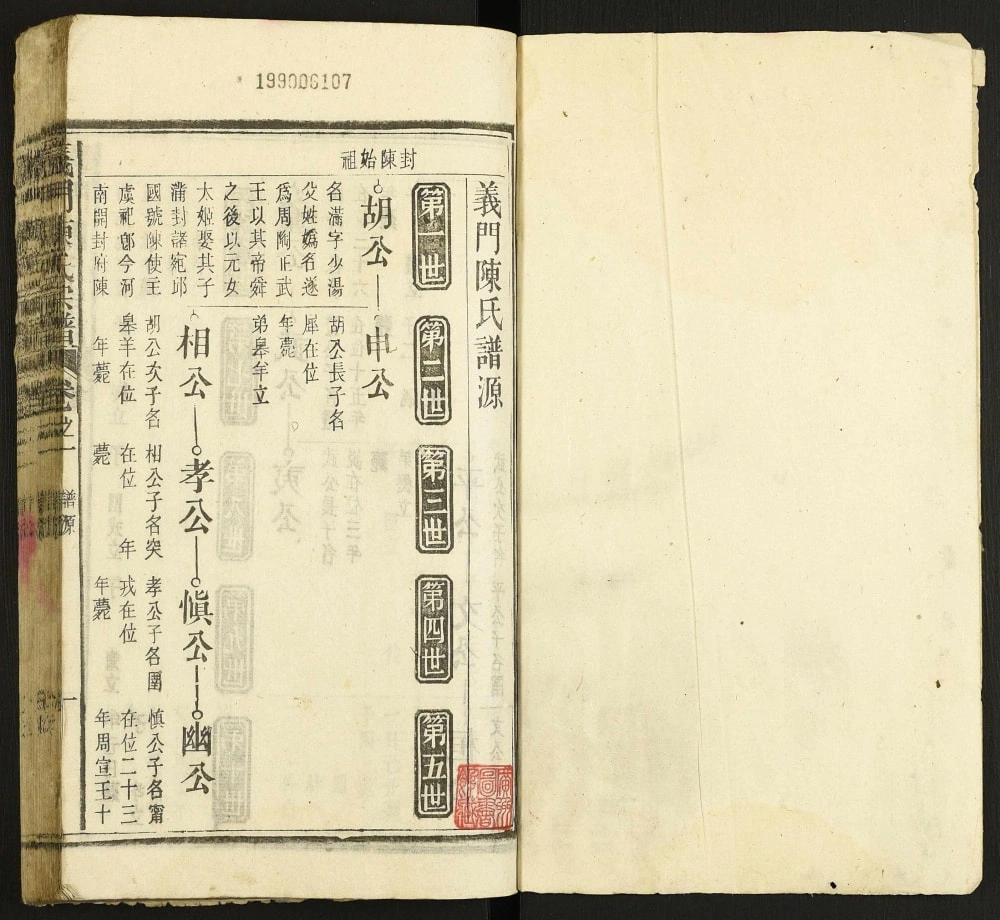 199006107
義門陳氏譜源
第一世
第二世
第三世
第四世
第五世
封陳始祖
胡公
申公
名滿字少湯
父姓嬀名遂
爲周陶正武
王以其帝舜
之後以元女
太姬娶其子
滿封諸宛邱
國號陳使王
虞祀郎今河
南開封府陳
胡公長子名
犀在位
年薨
弟皋羊立
相公
孝公
愼公
幽公
胡公次子名
皋羊在位
年薨
相公子名突
在位 年
薨
孝公子名圉
戎在位
年薨
愼公子名甯
在位二十三
年周宣王十
義門陳氏宗譜
卷之一
譜源
一